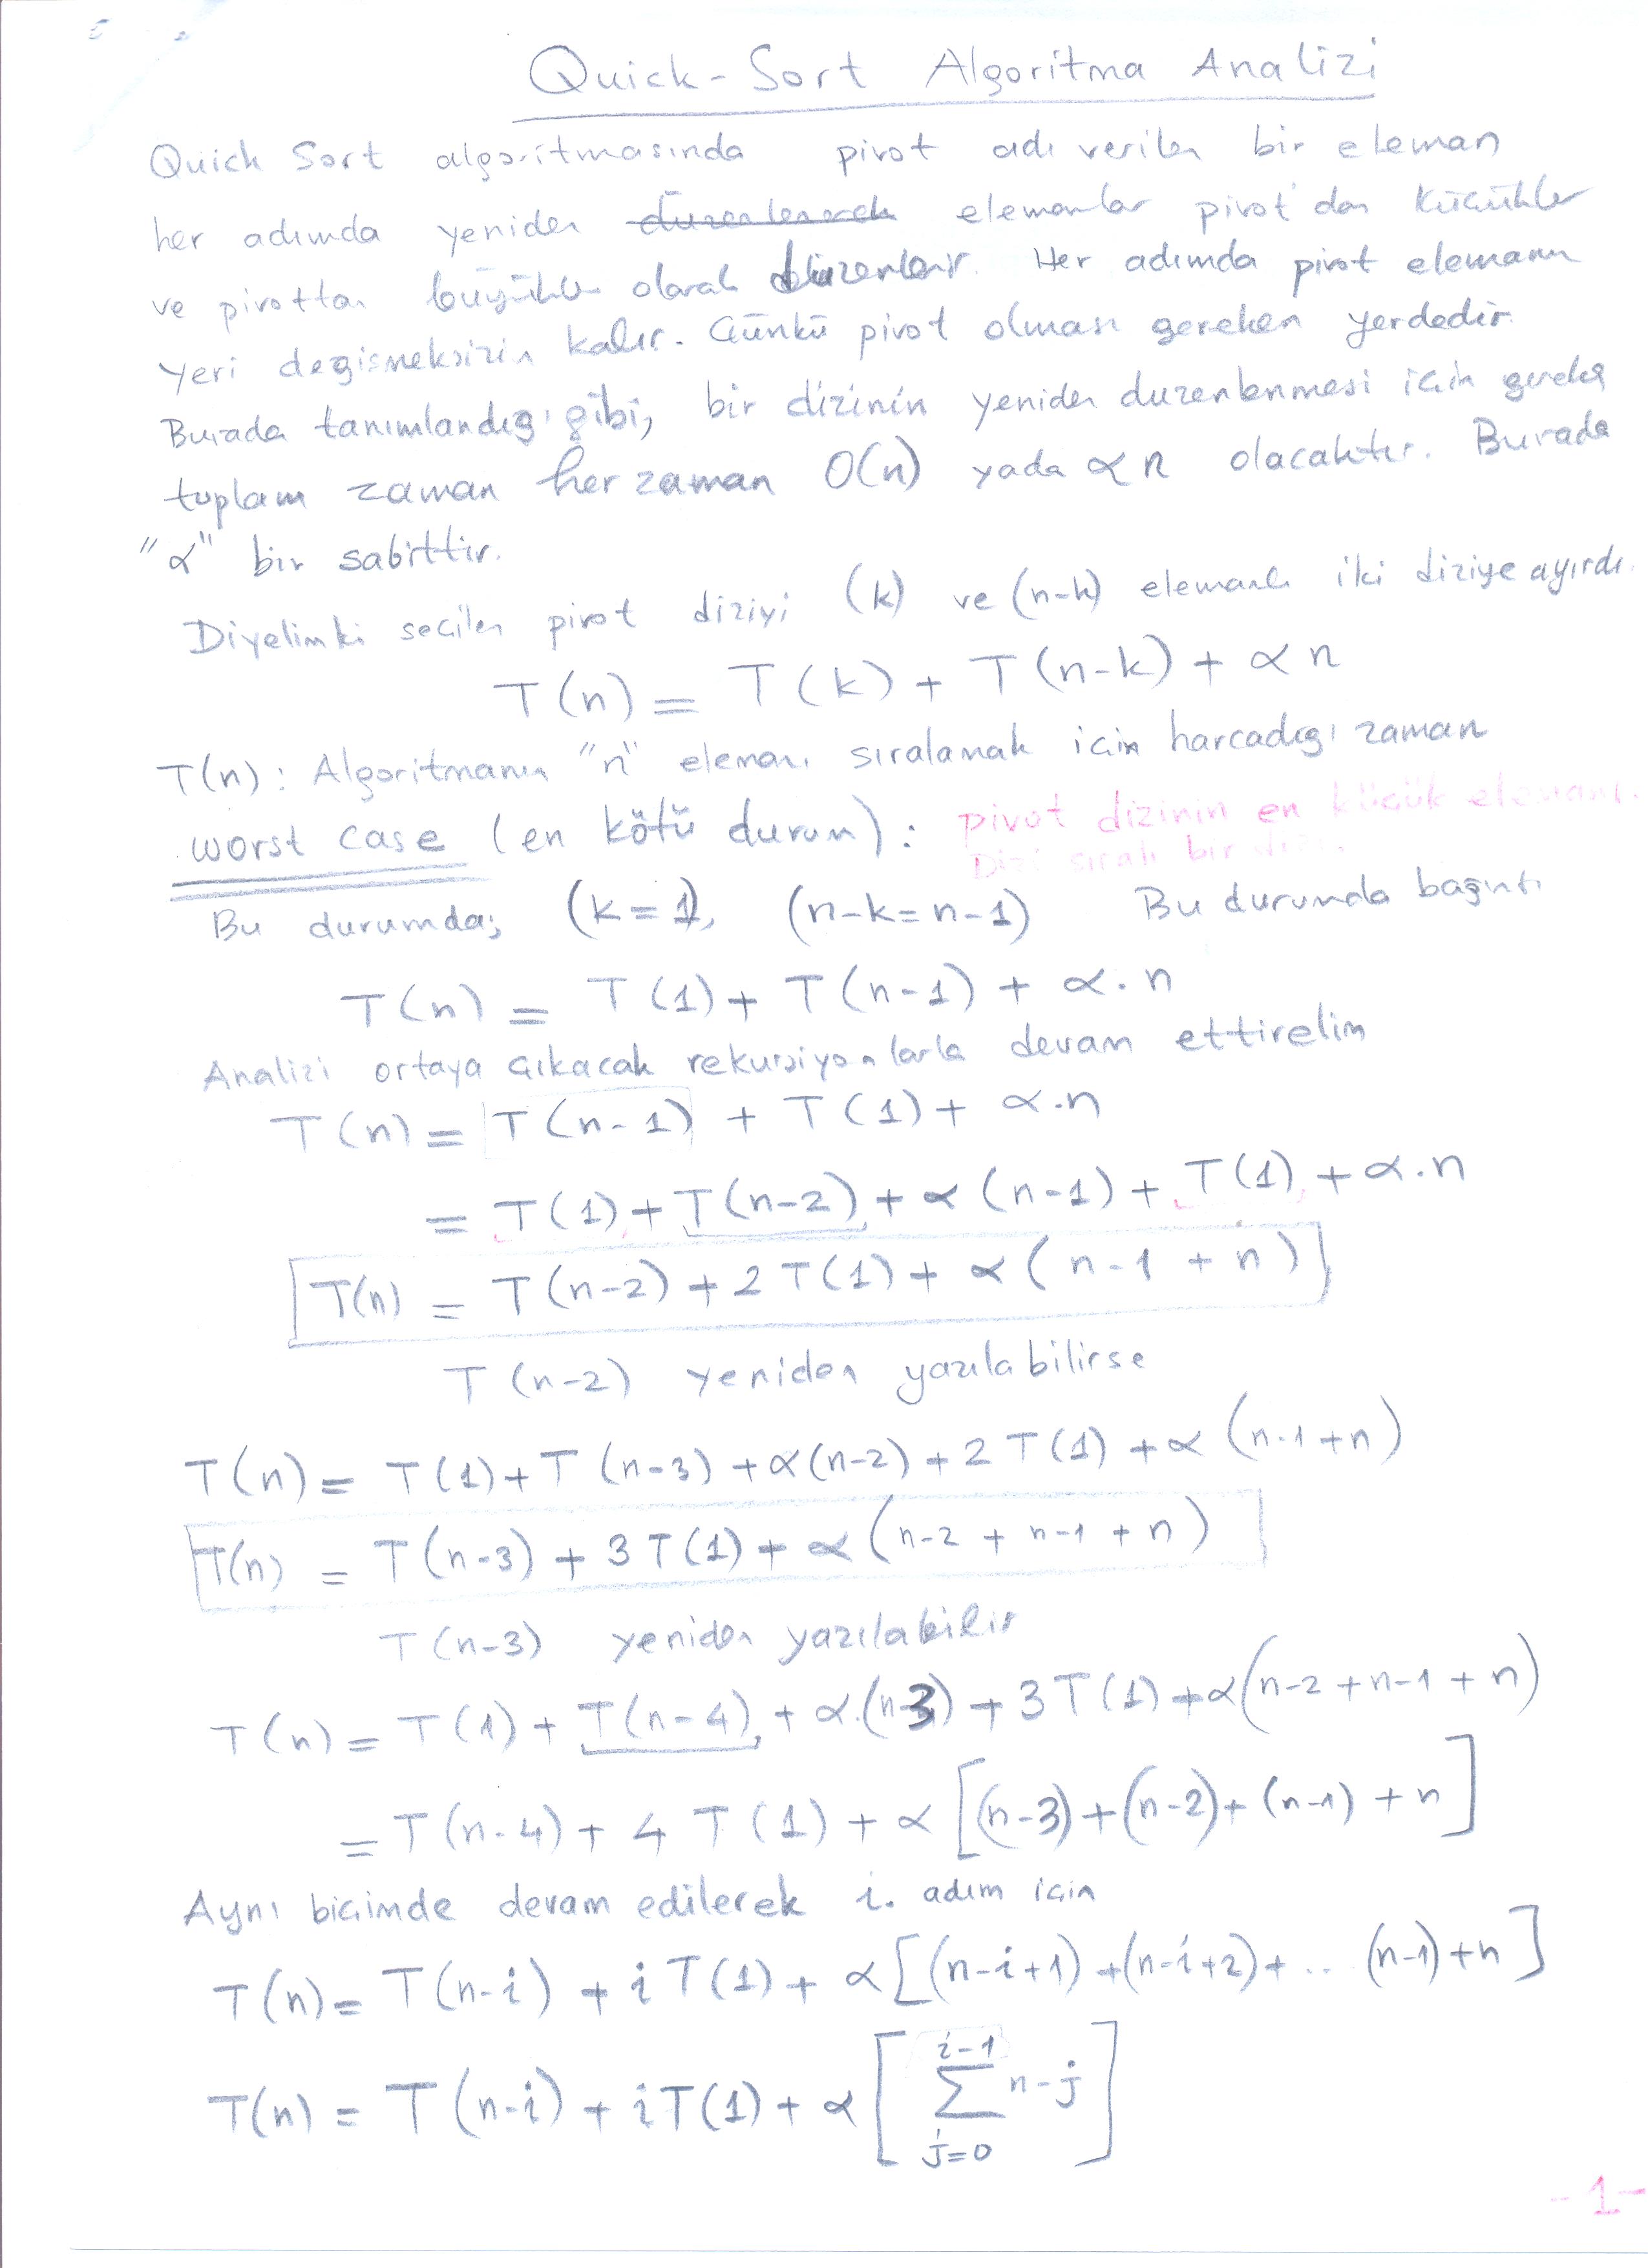 Quick-Sort Algoritma Analizi
Quick Sort algoritmasında pivot adı verilen bir eleman
her adımda yeniden düzenlenerek elemanlar pivot'dan küçükler
ve pivottan büyükler olarak düzenlenir. Her adımda pivot elemanın
yeri degismeksizin kalır. Çünkü pivot olması gereken yerdedir.
Burada tanımlandıgı gibi, bir dizinin yeniden duzenlenmesi için gereken
toplam zaman her zaman O(n) yada αn olacaktır. Burada
"α" bir sabittir.
Diyelimki seçilen pivot diziyi (k) ve (n-k) elemanlı iki diziye ayırdı.
T(n) = T(k) + T(n-k) + αn
T(n): Algoritmanın "n" elemanı sıralamak için harcadıgı zaman
worst case (en kötü durum): pivot dizinin en küçük elemanı.
Dizi sıralı bir dizi.
Bu durumda; (k=1), (n-k=n-1) Bu durumda bağıntı
T(n) = T(1) + T(n-1) + α.n
Analizi ortaya çıkacak rekursiyonlarla devam ettirelim
T(n) = T(n-1) + T(1) + α.n
= T(1) + T(n-2) + α(n-1) + T(1) + α.n
T(n) = T(n-2) + 2T(1) + α(n-1+n)
T(n-2) yeniden yazılabilirse
T(n) = T(1) + T(n-3) + α(n-2) + 2T(1) + α(n-1+n)
T(n) = T(n-3) + 3T(1) + α(n-2+n-1+n)
T(n-3) yeniden yazılabilir
T(n) = T(1) + T(n-4) + α.(n-3) + 3T(1) + α(n-2+n-1+n)
= T(n-4) + 4T(1) + α[(n-3)+(n-2)+(n-1)+n]
Aynı biçimde devam edilerek i. adım için
T(n) = T(n-i) + iT(1) + α[(n-i+1)+(n-i+2)+... (n-1)+n]
T(n) = T(n-i) + iT(1) + α[∑_{j=0}^{i-1} n-j]
-1-